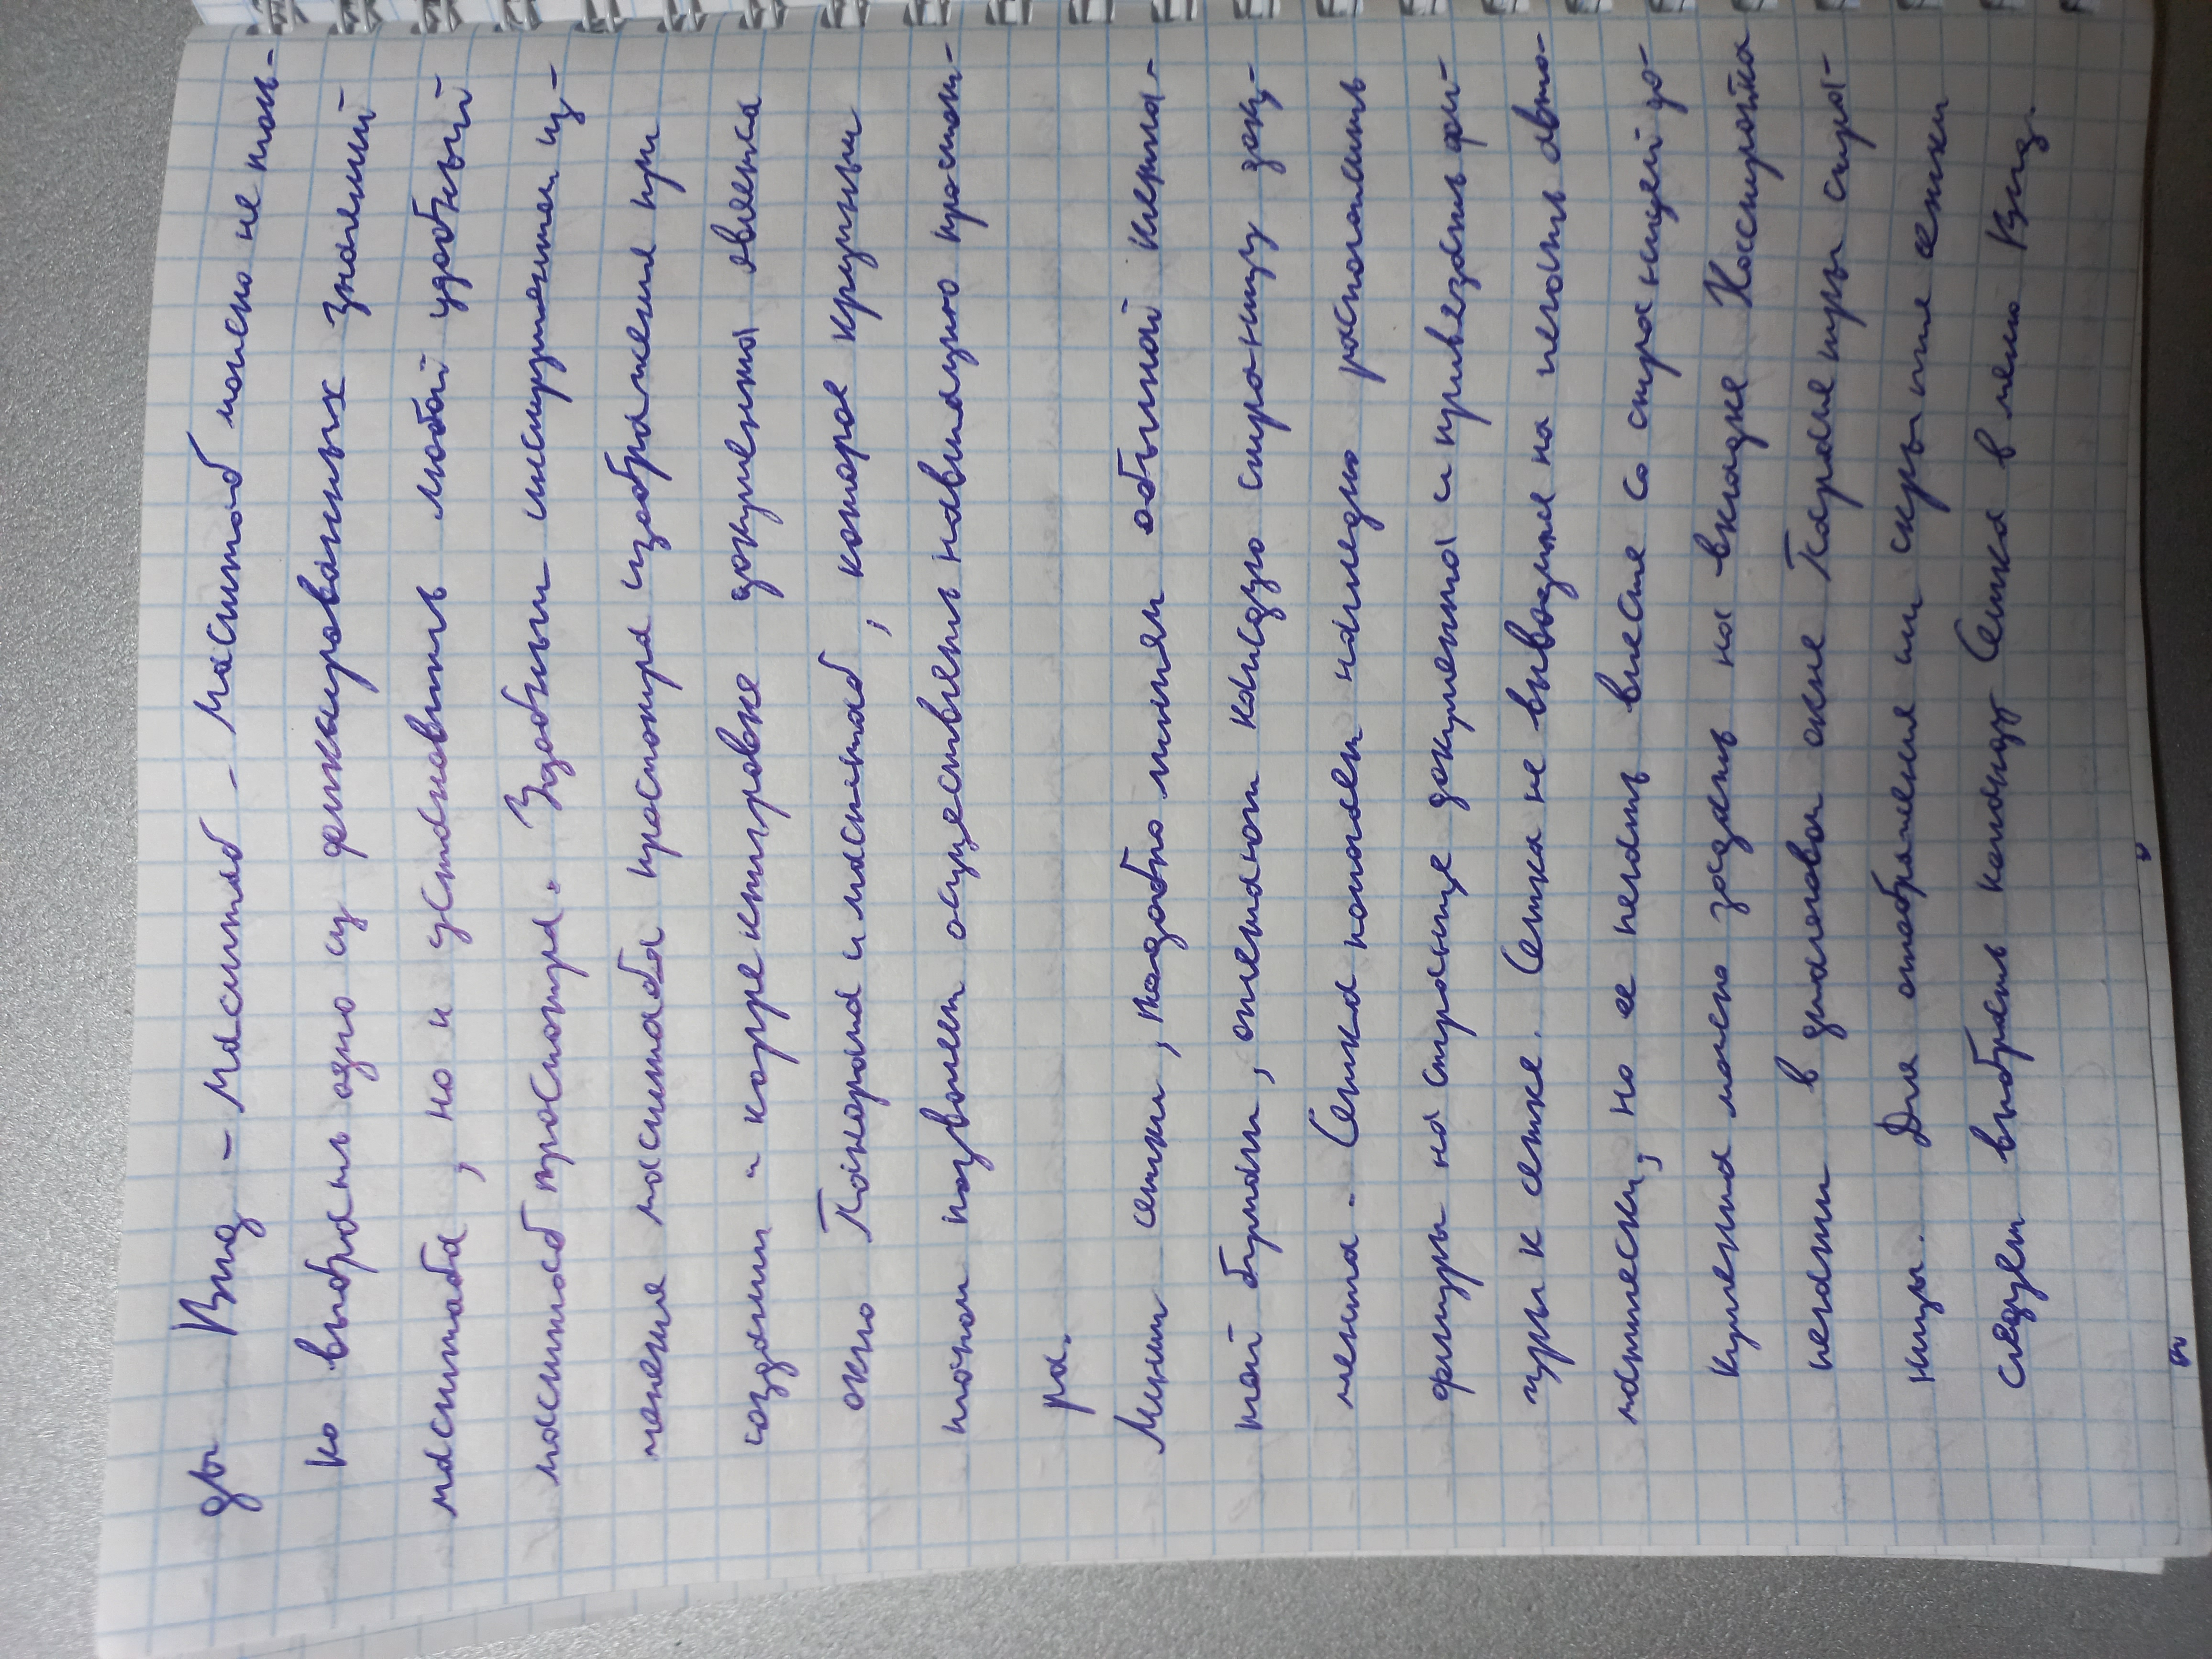 ды Вид - Масштаб - Масштаб можно не толь-
ко выбрать одно из фиксированных значений
масштаба, но и установить любой удобный
масштаб просмотра. Удобным инструментом из-
менения масштаба просмотра изображения при
создании и корректировке документа является
окно Панорама и масштаб, которое крупным
планом позволяет осуществлять навигацию просмот-
ра.
Линии сетки, подобно линиям обычной клетча-
той бумаги, отмечают каждую страницу доку-
мента. Сетка помогает наглядно расположить
фигуры на странице документа и привязать фи-
гуры к сетке. Сетка не выводится на печать авто-
матически, но ее печать вместе со страницей до-
кумента можно задать на вкладке Настройка
печати в диалоговом окне Параметры стра-
ницы. Для отображения или скрытия сетки
следует выбрать команду Сетка в меню Вид.